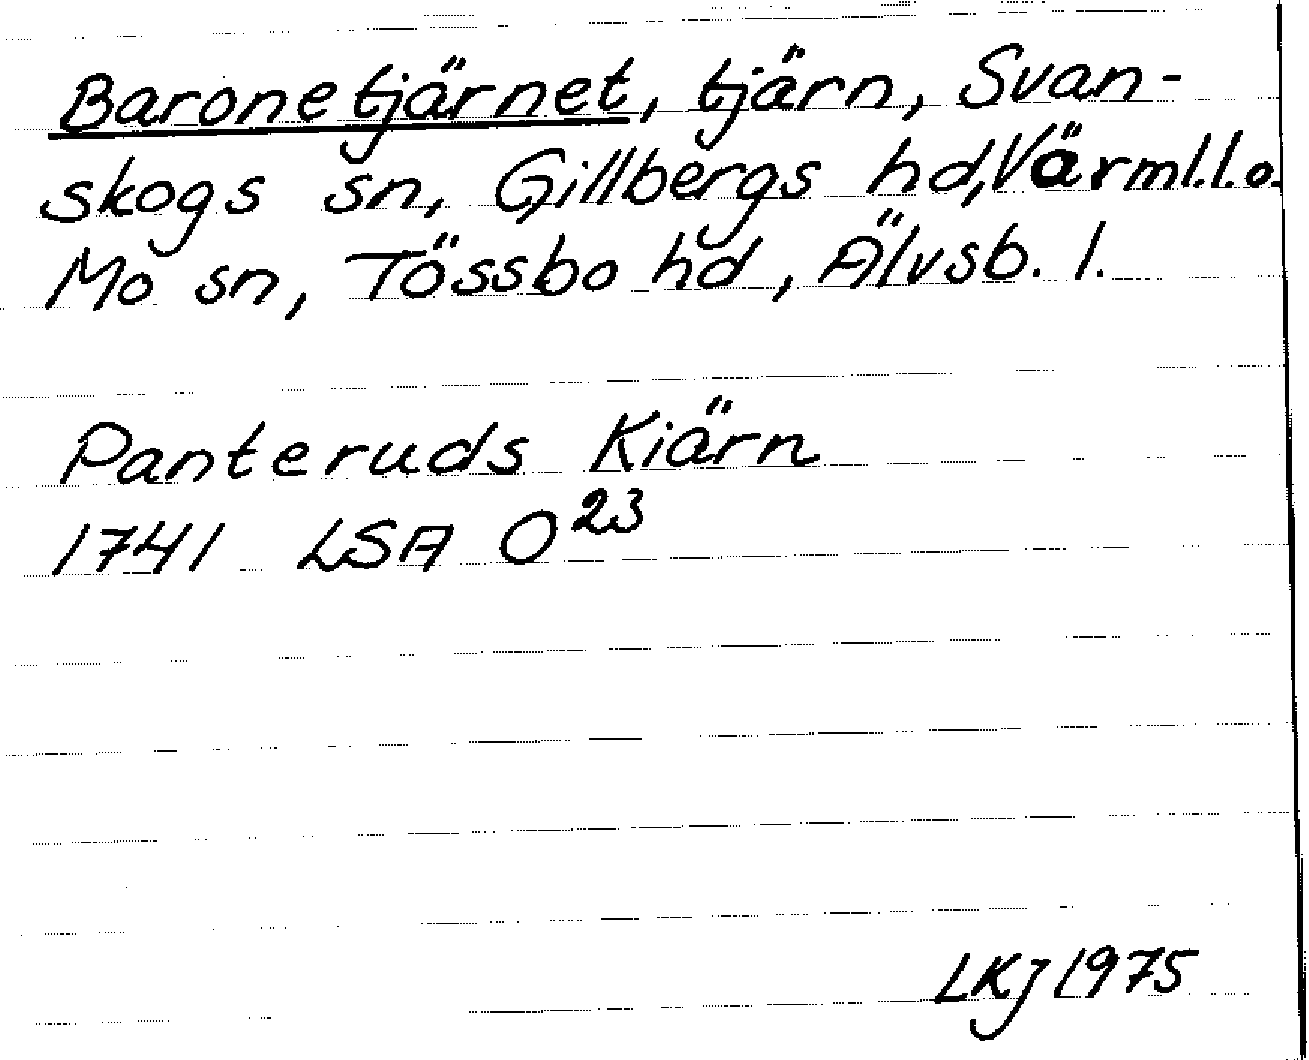 Baronetjärnet, tjärn, Svan-
skogs sn, Gillbergs hd, Värml.l.o.
Mo sn, Tössbo hd, Älvsb. l.
Panteruds Kiärn
1741 LSA O²³
LKJ 1975